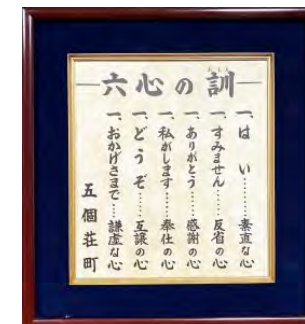 六心の訓
一、はい………素直な心
一、すみません……反省の心
一、ありがとう……感謝の心
一、私がします……奉仕の心
一、どうぞ……互譲の心
一、おかげさまで……謙虚な心
五個荘町